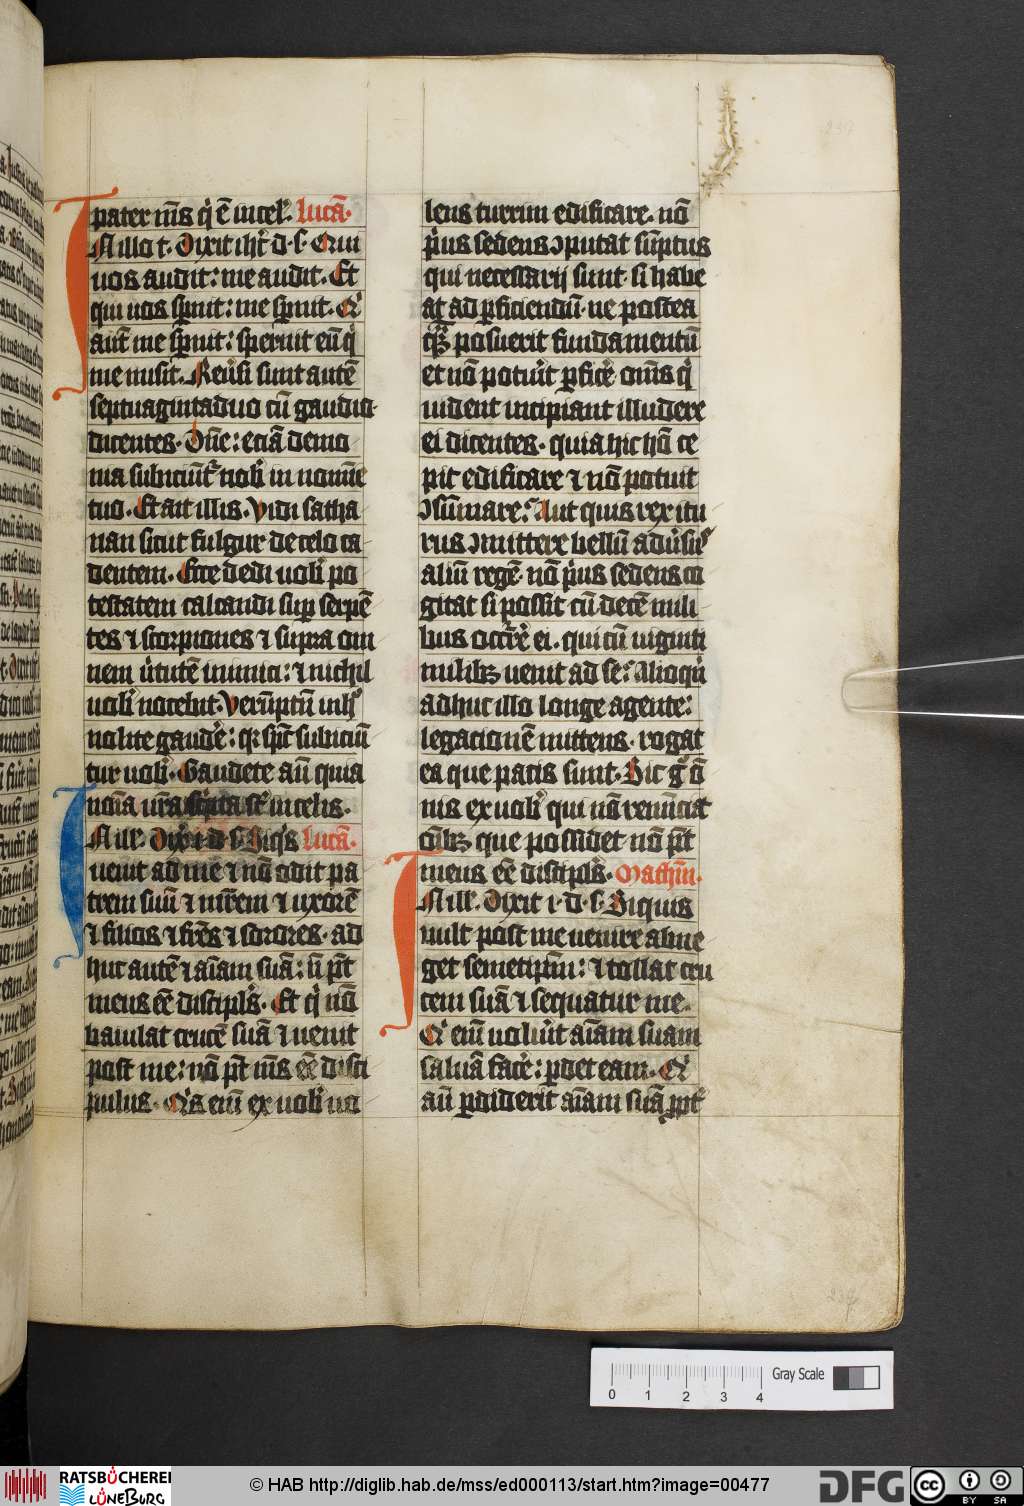 pater mͤs q̇ ē in cel'. Lucā.
In illo t. Dixit ihc̄ d. s. Qui
uos audit: me audit. Et
qui uos sp̄nit: me sp̄nit. Qͥ
aut̄ me sp̄nit: spernit eū q̇
me misit. Reūsi sunt autē
septuagintaduo cū gaudio
dicentes. Dn̄e: eciā demo
nia subiciūt̄ nob̄ in nomīe
tuo. Et ait illis. Vidi satha
nan sicut fulgur de celo ca
dentem. Ecce dedi uob̄ po
testatem calcandi sup̄ serpē
tes ⁊ scorpiones ⁊ supra om
nem ūtutē inimici: ⁊ nichil
uob̄ nocebit. Verūptū in hͦ
nolite gaudē: qꝛ sp̄c subiciū
tur uob̄. Gaudete aū quia
noīa ur̄a sc̄pta st̄ in celis.
In ill'. Dix̄ i d s. Siq̇s Lucā.
uenit ad me ⁊ nō odit pa
trem suū ⁊ mr̄em ⁊ uxorē
⁊ filios ⁊ fr̄es ⁊ sorores. ad
huc autē ⁊ aīam suā: n̄ pt̄
meus eē discipl's. Et q̇ nō
baiulat crucē suā ⁊ uenit
post me: nō pt̄ mͤs eē disci
pulus. Qͥs enī ex uob̄ uo
lens turrim edificare. nō
pͥus sedens ↄputat sūptus
qui necessarij sunt. si habe
at ad ꝑficiendū. ne postea
qͣꝫ posuerit fundamentū
et nō potūit ꝑficē. om̄s q̇
uident incipiant illudere
ei dicentes. quia hic hō ce
pit edificare ⁊ nō potuit
ↄsūmare: Aut quis rex itu
rus ↄmittere bellū adūsus
aliū regē. nō pͥus sedens co
gitat si possit cū decē mili
bus occr̄rē ei. qui cū uiginti
milibꝫ uenit ad se: Alioqū
adhuc illo longe agente:
legacionē mittens. rogat
ea que pacis sunt. Sic gͦ ō
nis ex uob̄ qui nō renūciat
oībꝫ que possidet nō pt̄
meus eē discipl's. Mathm̄.
In ill'. Dixit i. d. s. Siquis
uult post me uenire abne
get semetip̄m: ⁊ tollat cru
cem suā ⁊ sequatur me.
Qͥ enī uolūit aīam suam
saluā facē: ꝑdet eam. Qͥ
aū ꝑdiderit aīam suā ꝓpt̄
0 1 2 3 4 Gray Scale
RATSBÜCHEREI LÜNEBURG
© HAB http://diglib.hab.de/mss/ed000113/start.htm?image=00477
DFG
cc BY SA